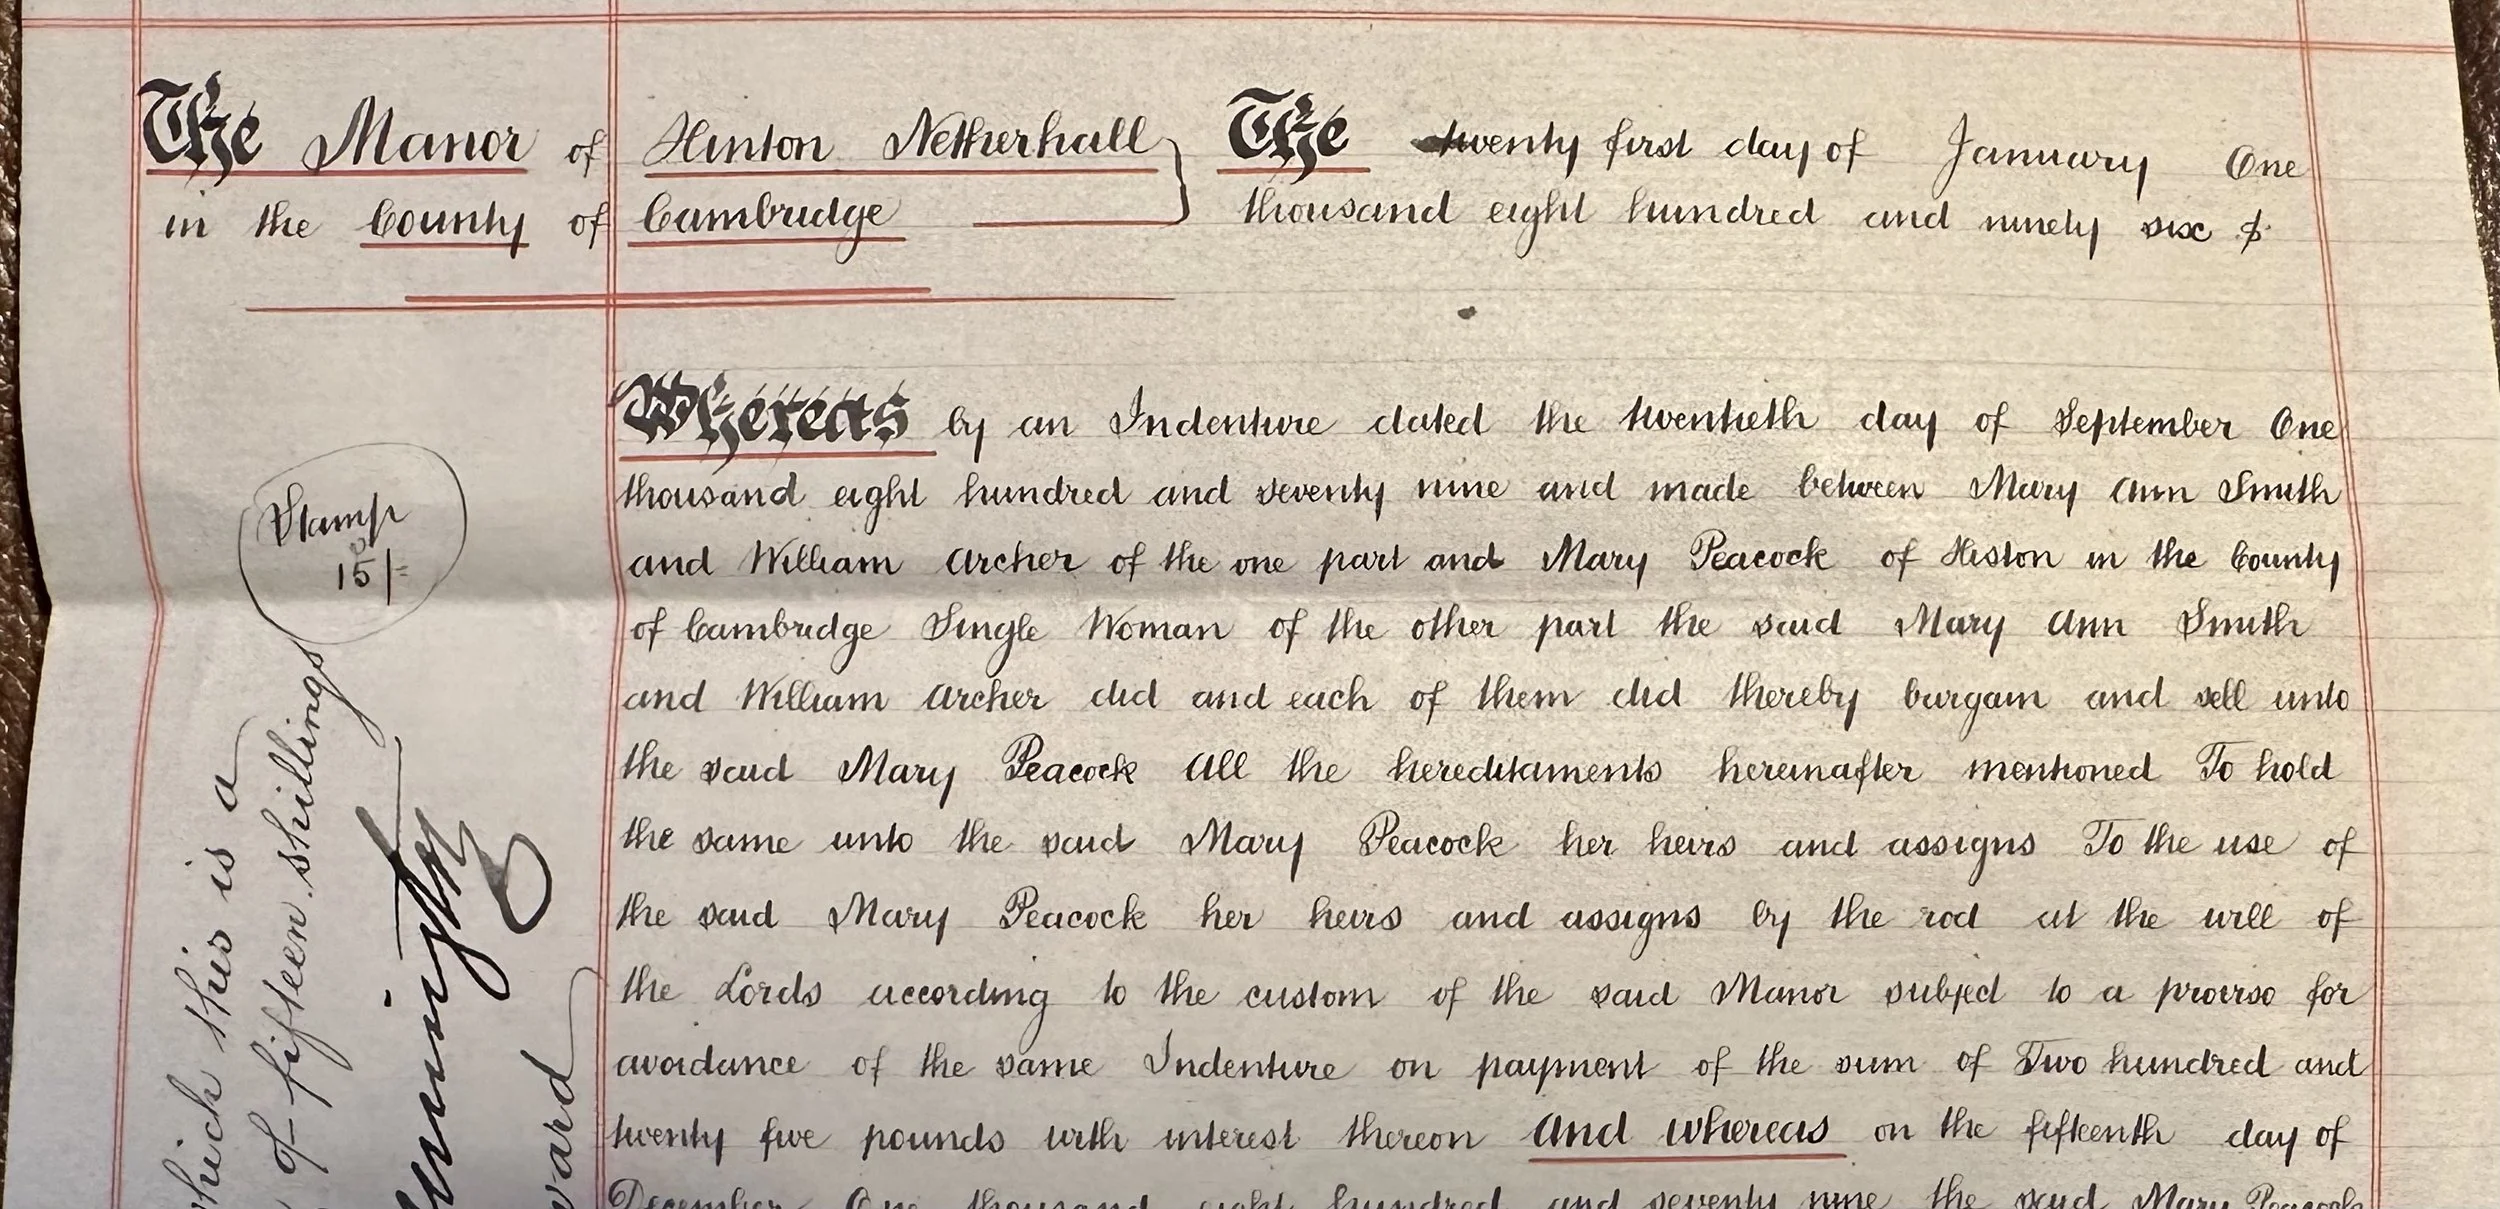 The Manor of Hinton Netherhall
in the County of Cambridge
The twenty first day of January One
thousand eight hundred and ninety six &
Whereas by an Indenture dated the twentieth day of September One
thousand eight hundred and seventy nine and made between Mary Ann Smith
and William Archer of the one part and Mary Peacock of Histon in the County
of Cambridge Single Woman of the other part the said Mary Ann Smith
and William Archer did and each of them did thereby bargain and sell unto
the said Mary Peacock All the hereditaments hereinafter mentioned To hold
the same unto the said Mary Peacock her heirs and assigns To the use of
the said Mary Peacock her heirs and assigns by the rod at the will of
the Lords according to the custom of the said Manor subject to a proviso for
avoidance of the same Indenture on payment of the sum of Two hundred and
twenty five pounds with interest thereon And whereas on the fifteenth day of
December One thousand eight hundred and seventy nine the said Mary Peacock
Stamp
15/=
which this is a
of fifteen shillings